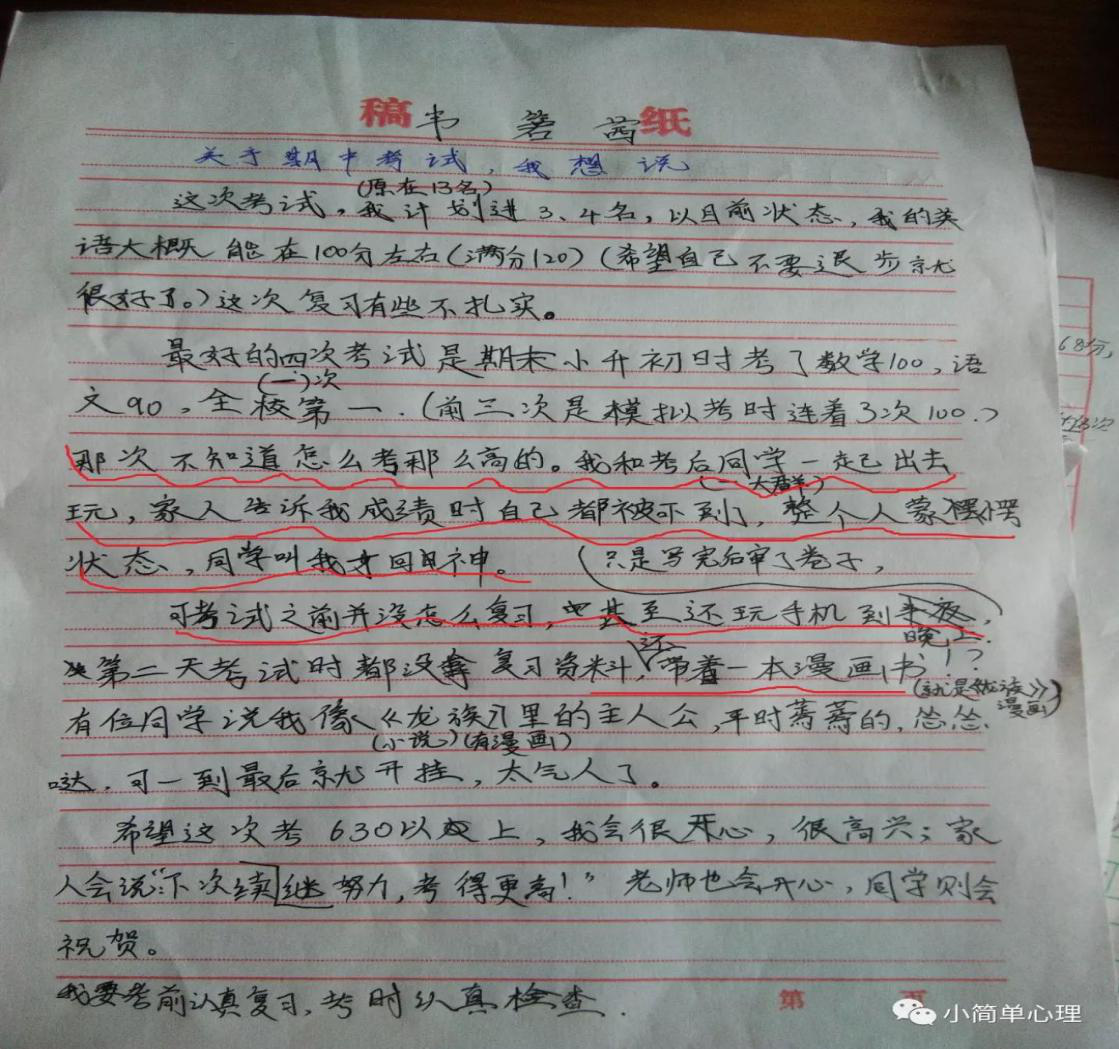 稿 纸
关于期中考试，我想说
(原在13名)
这次考试，我计划进3、4名，以目前状态，我的英
语大概能在100分左右(满分120)(希望自己不要退步就
很好了。)这次复习有些不扎实。
最好的四次考试是期末小升初时考了数学100，语
(一)次
文90，全校第一.(前三次是模拟考时连着3次100.)
那次不知道怎么考那么高的。我和考后同学一起出去
(一大群)
玩，家人告诉我成绩时自己都被吓到了，整个人蒙愣愣
状态，同学叫我才回过神。(只是写完后审了卷子，
可考试之前并没怎么复习，甚至还玩手机到半夜，
还 晚上
第二天考试时都没拿复习资料，带着一本漫画书！？
(就是《龙族》漫画)
有位同学说我像《龙族》里的主人公，平时蔫蔫的，怂怂
(小说)(有漫画)
哒，可一到最后就开挂，太气人了。
希望这次考630以上，我会很开心，很高兴；家
人会说“下次续继努力，考得更高！”老师也会开心，同学则会
祝贺。
我要考前认真复习，考时认真检查.
第 页
68分，
小简单心理